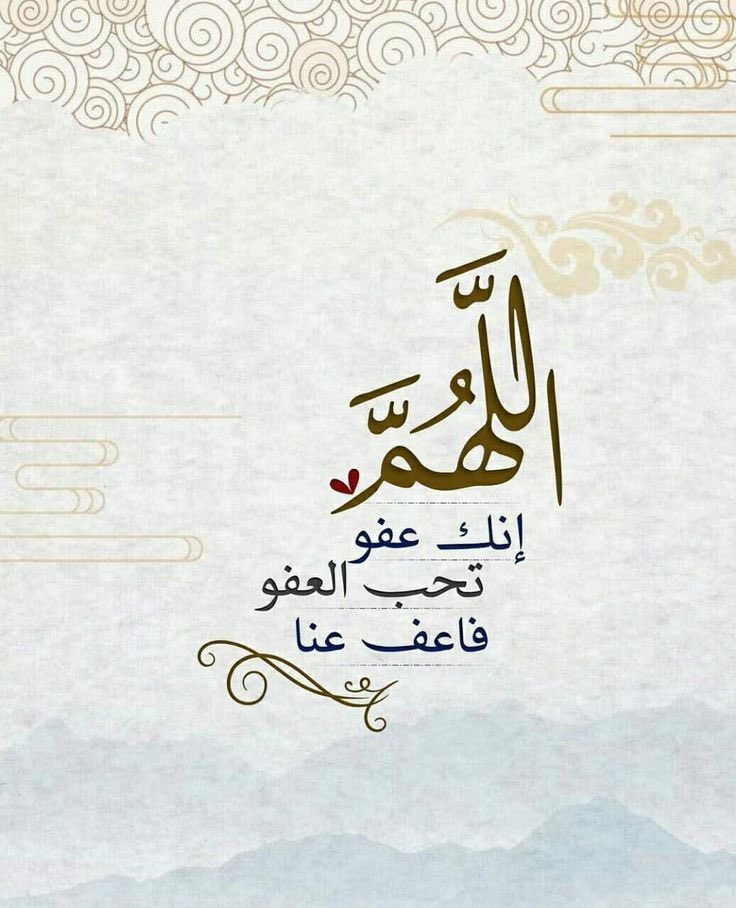 اللَّهُمَّ
إنك عفو
تحب العفو
فاعف عنا